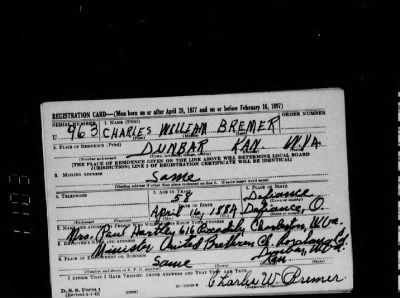 REGISTRATION CARD—(Men born on or after April 28, 1877 and on or before February 16, 1897)
SERIAL NUMBER 1. NAME (Print) ORDER NUMBER
U 963 CHARLES WILLIAM BREMER
2. PLACE OF RESIDENCE (Print)
DUNBAR KAN. W.VA.
[THE PLACE OF RESIDENCE GIVEN ON THE LINE ABOVE WILL DETERMINE LOCAL BOARD
JURISDICTION; LINE 2 OF REGISTRATION CERTIFICATE WILL BE IDENTICAL]
3. MAILING ADDRESS
Same
[Mailing address if other than place indicated on line 2. If same insert word same]
4. TELEPHONE 5. AGE IN YEARS 6. PLACE OF BIRTH
58 Defiance
DATE OF BIRTH
April 16, 1884 Defiance, O.
7. NAME AND ADDRESS OF PERSON WHO WILL ALWAYS KNOW YOUR ADDRESS
Mrs. Paul Hartley 616 Charleston, W.Va.
8. EMPLOYER'S NAME AND ADDRESS
Minister United Brethren Ch.
9. PLACE OF EMPLOYMENT OR BUSINESS
Same Dunbar, W.Va.
Kan.
I AFFIRM THAT I HAVE VERIFIED ABOVE ANSWERS AND THAT THEY ARE TRUE.
D. S. S. Form 1
(Revised 4-1-42)
Charles W Bremer